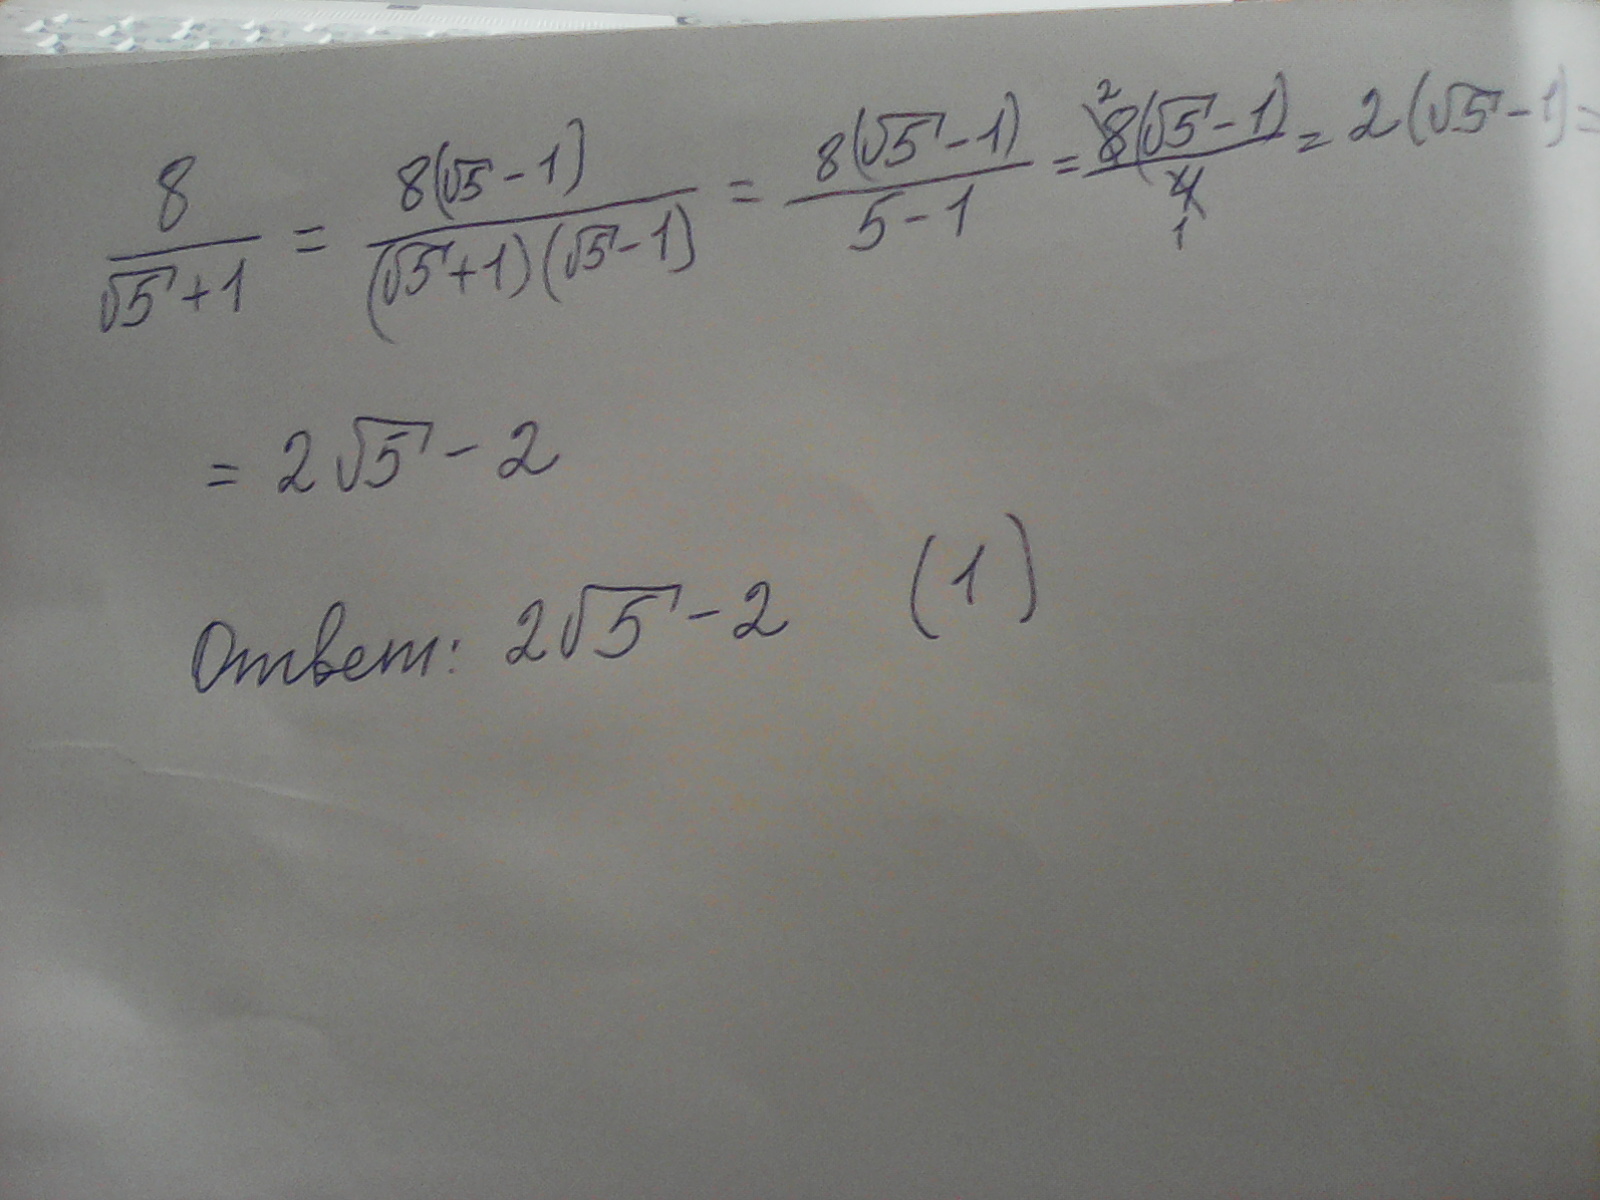 8/(√5+1) = 8(√5-1)/((√5+1)(√5-1)) = 8(√5-1)/(5-1) = 8(√5-1)/4 = 2(√5-1) =
= 2√5 - 2
Ответ: 2√5 - 2 (1)